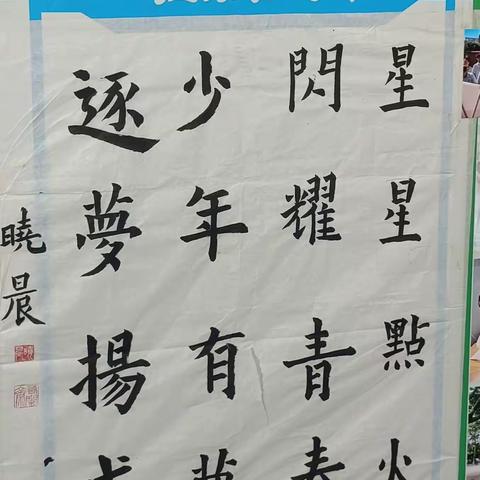 星星點火
閃耀青春
少年有夢
逐夢揚
曉晨